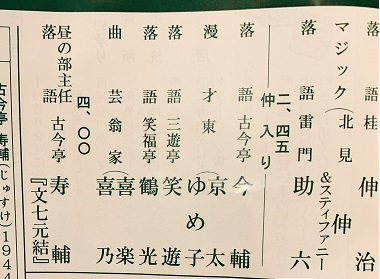 落語 桂 伸治
マジック(北見 伸
&スティファニー
落語 雷門 助六
二、四五
仲入り
落語 古今亭 今輔
漫才 東(京太
ゆめ子
落語 三遊亭 笑遊
落語 笑福亭 鶴光
曲芸 翁家(喜楽
喜乃
四、〇〇
昼の部主任
落語 古今亭 寿輔
『文七元結』
古今亭 寿輔(じゅすけ)1944